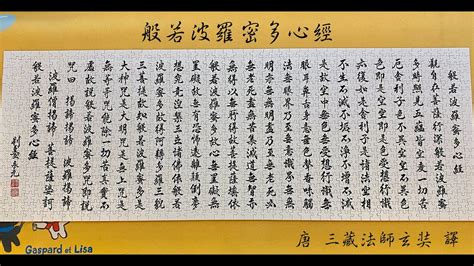 般若波羅密多心經
般若波羅密多心經
觀自在菩薩行深般若波羅密
多時照見五蘊皆空度一切苦
厄舍利子色不異空空不異色
色即是空空即是色受想行識
亦復如是舍利子是諸法空相
不生不滅不垢不淨不增不減
是故空中無色無受想行識無
眼耳鼻舌身意無色聲香味觸
法無眼界乃至無意識界無無
明亦無無明盡乃至無老死亦
無老死盡無苦集滅道無智亦
無得以無所得故菩提薩埵依
般若波羅密多故心無罣礙無
罣礙故無有恐怖遠離顛倒夢
想究竟涅槃三世諸佛依般若
波羅密多故得阿耨多羅三藐
三菩提故知般若波羅密多是
大神咒是大明咒是無上咒是
無等等咒能除一切苦真實不
虛故說般若波羅密多咒即說
咒曰 揭諦揭諦 波羅揭諦
波羅僧揭諦 菩提薩婆訶
般若波羅密多心經
唐 三藏法師玄奘 譯
Gaspard et Lisa